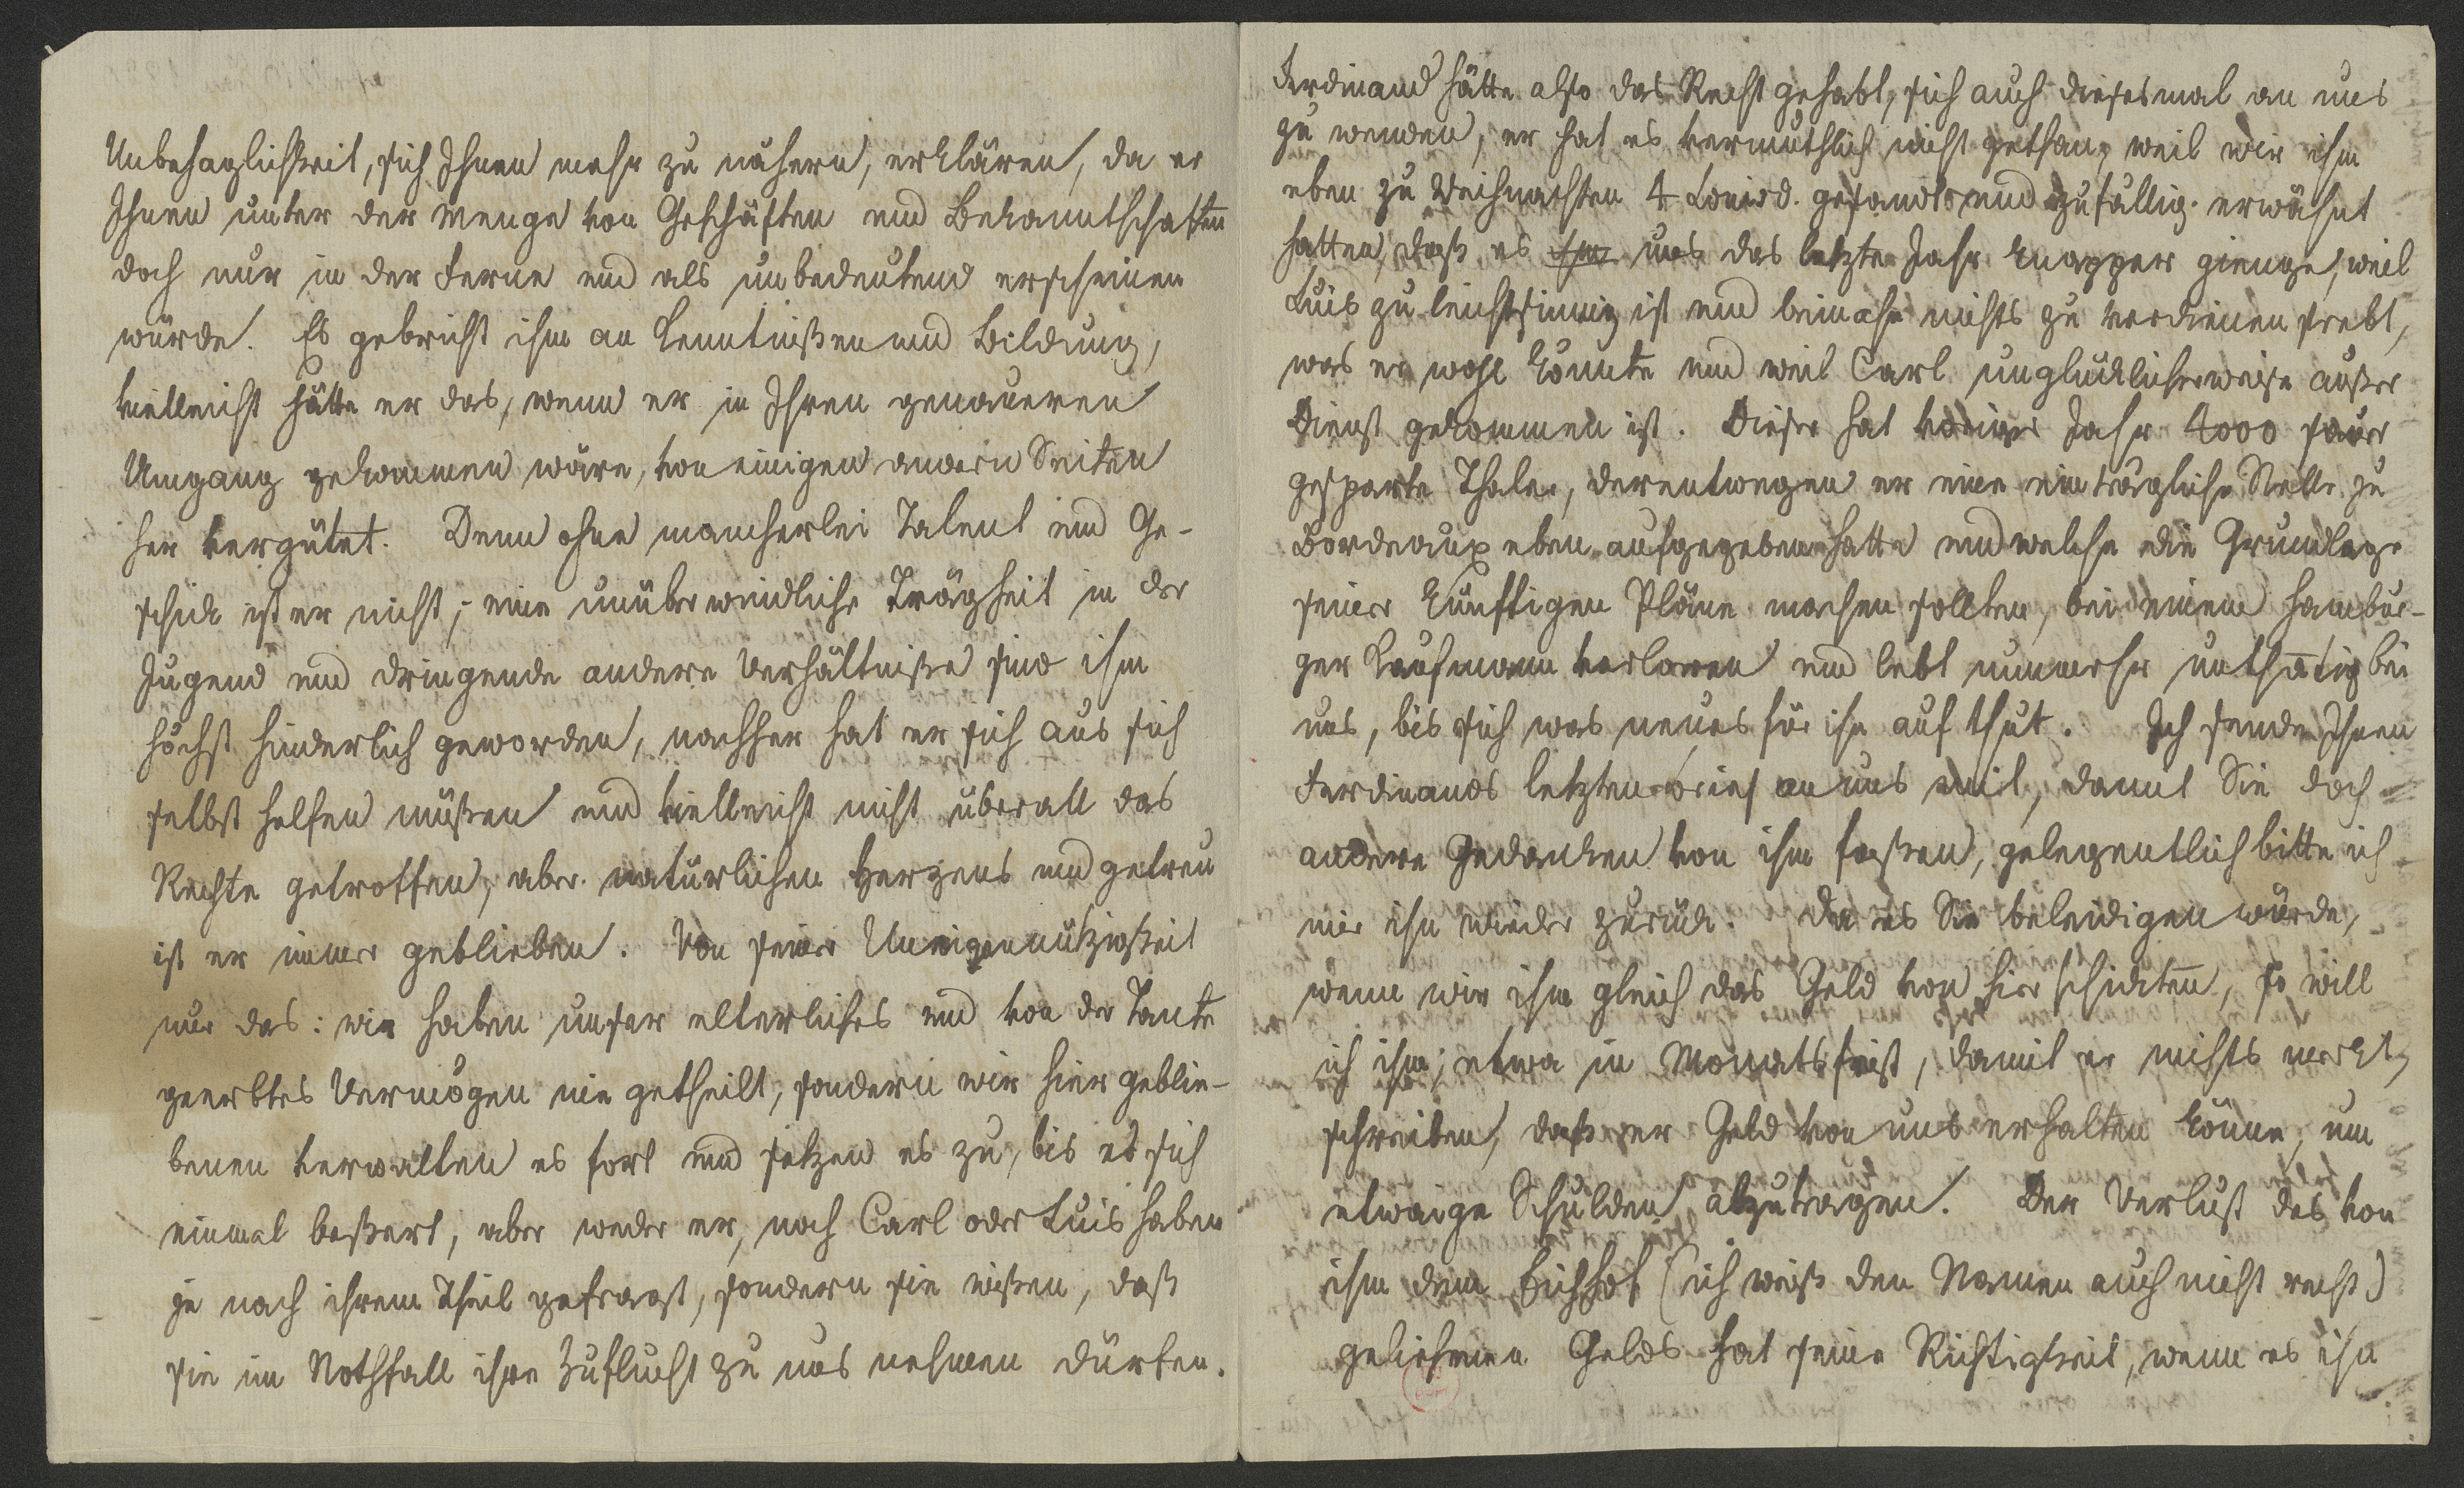 Unbehaglichkeit, sich Ihnen mehr zu nähern, erklären, da er
Ihnen unter der Menge von Geschäften und Bekanntschaften
doch nur in der Ferne und als unbedeutend erscheinen
würde. Es gebricht ihm an Kenntnißen und Bildung,
vielleicht hätte er das, wenn er in Ihren genaueren
Umgang gekommen wäre, von einigen andern Seiten
her vergütet. Denn ohne mancherlei Talent und Ge-
schick ist er nicht; eine unüberwindliche Trägheit in der
Jugend und dringende andere Verhältniße sind ihm
höchst hinderlich geworden, nachher hat er sich aus sich
selbst helfen müßen und vielleicht nicht überall das
Rechte getroffen, aber natürlichen Herzens und getreu
ist er immer geblieben. Von seiner Uneigennützigkeit
nur das: wir haben unser elterliches und von der Tante
geerbtes Vermögen nie getheilt, sondern wir hier geblie-
benen verwalten es fort und setzen es zu, bis es sich
einmal beßert, aber weder er, noch Carl oder Luis haben
je nach ihrem Theil gefragt, sondern sie wißen, daß
sie im Nothfall ihre Zuflucht zu uns nehmen dürfen.
Ferdinand hätte also das Recht gehabt, sich auch diesesmal an uns
zu wenden, er hat es vermuthlich nicht gethan, weil wir ihm
eben zu Weihnachten 4 Louisd. gesandt und zufällig erwähnt
hatten, daß es uns das letzte Jahr knapper gienge, weil
Luis zu leichtsinnig ist und beinahe nichts zu verdienen strebt,
was er wohl könnte und weil Carl unglücklicherweise außer
Dienst gekommen ist. Dieser hat voriges Jahr 4000 sauer
gesparte Thaler, derentwegen er eine einträgliche Stelle zu
Bordeaux eben aufgegeben hatte und welche die Grundlage
seiner künftigen Pläne machen sollten, bei einem Hambur-
ger Kaufmann verloren und lebt nunmehr unthätig bei
uns, bis sich was neues für ihn auf thut. Ich sende Ihnen
Ferdinands letzten Brief an uns mit, damit Sie doch
andere Gedanken von ihm faßen, gelegentlich bitte ich
mir ihn wieder zurück. Da es Sie beleidigen würde,
wenn wir ihm gleich das Geld von hier schickten, so will
ich ihm, etwa in Monatsfrist, damit er nichts merkt,
schreiben, daß er Geld von uns erhalten könne, um
etwaige Schulden abzutragen. Der Verlust des von
ihm dem Eichhof (ich weiß den Namen auch nicht recht)
geliehenen Gelds hat seine Richtigkeit, wenn es ihn